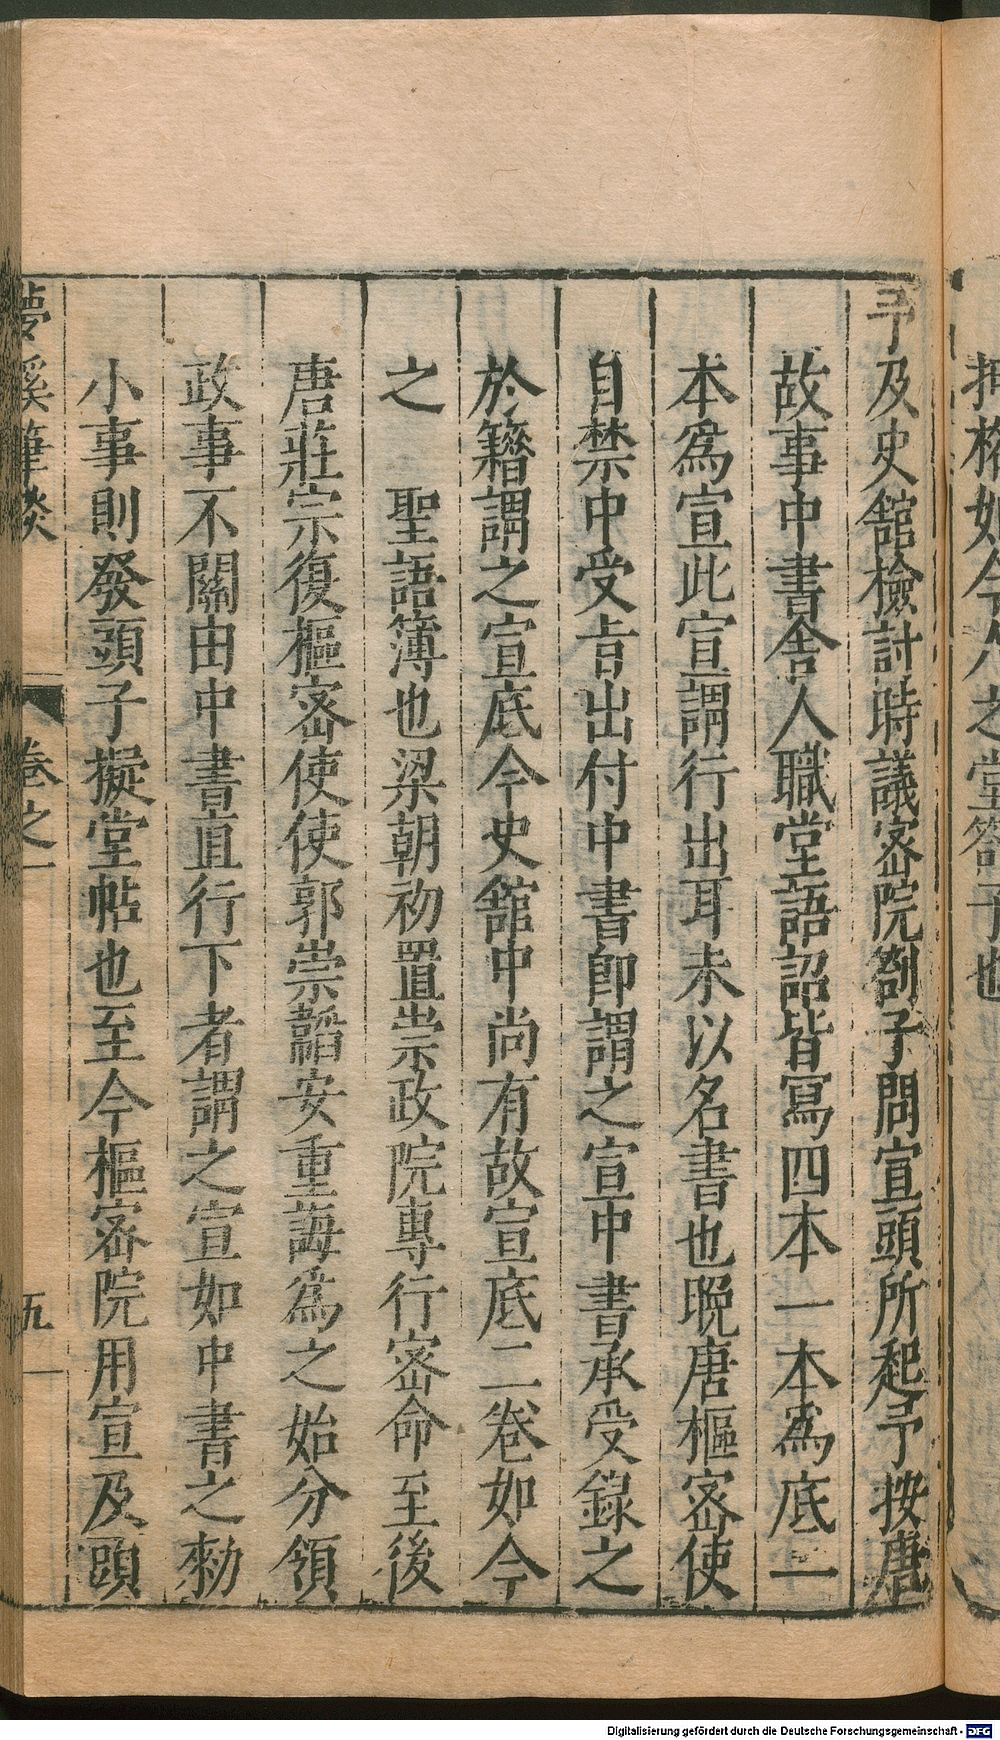 押檢如今分之堂劄子也
予及史館檢討時議密院劄子問宣頭所起予按唐
故事中書舍人職堂語詔皆寫四本一本爲底一
本爲宣此宣謂行出耳未以名書也晚唐樞密使
自禁中受旨出付中書卽謂之宣中書承受錄之
於籍謂之宣底今史館中尚有故宣底二卷如今
之　聖語簿也梁朝初置崇政院專行密命至後
唐莊宗復樞密使使郭崇韜安重誨爲之始分領
政事不關由中書直行下者謂之宣如中書之勑
小事則發頭子擬堂帖也至今樞密院用宣及頭
夢溪筆談　卷之一　五
Digitalisierung gefördert durch die Deutsche Forschungsgemeinschaft - DFG